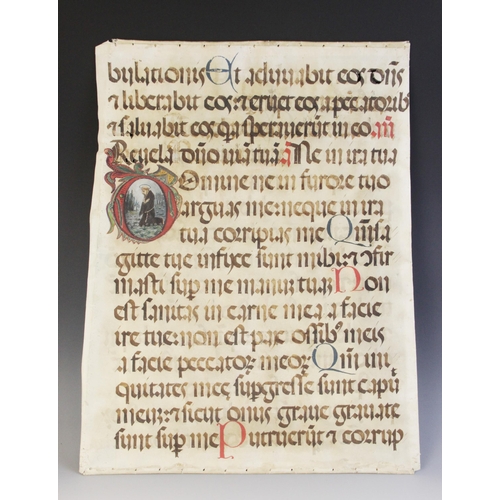 bulationis Et adiuvabit eos dn̄s
⁊ liberabit eos: ⁊ eruet eos a peccatorib
⁊ salvabit eos q̄a speraverūt in eo. añ
Revela dn̄o viā tuā. añ Ne in ira tua
Domine ne in furore tuo
arguas me: neque in ira
tua corripias me Qm̄ sa
gitte tue infixe sunt mihi: ⁊ ɔfir
masti sup̄ me manū tuaʒ Non
est sanitas in carne mea a facie
ire tue: non est pax ossibꝰ meis
a facie peccatoꝝ meoꝝ Qm̄ ini
quitates meę supgresse sunt caput
meū: ⁊ sicut onus grave gravate
sunt sup̄ me Putruerūt ⁊ corrup